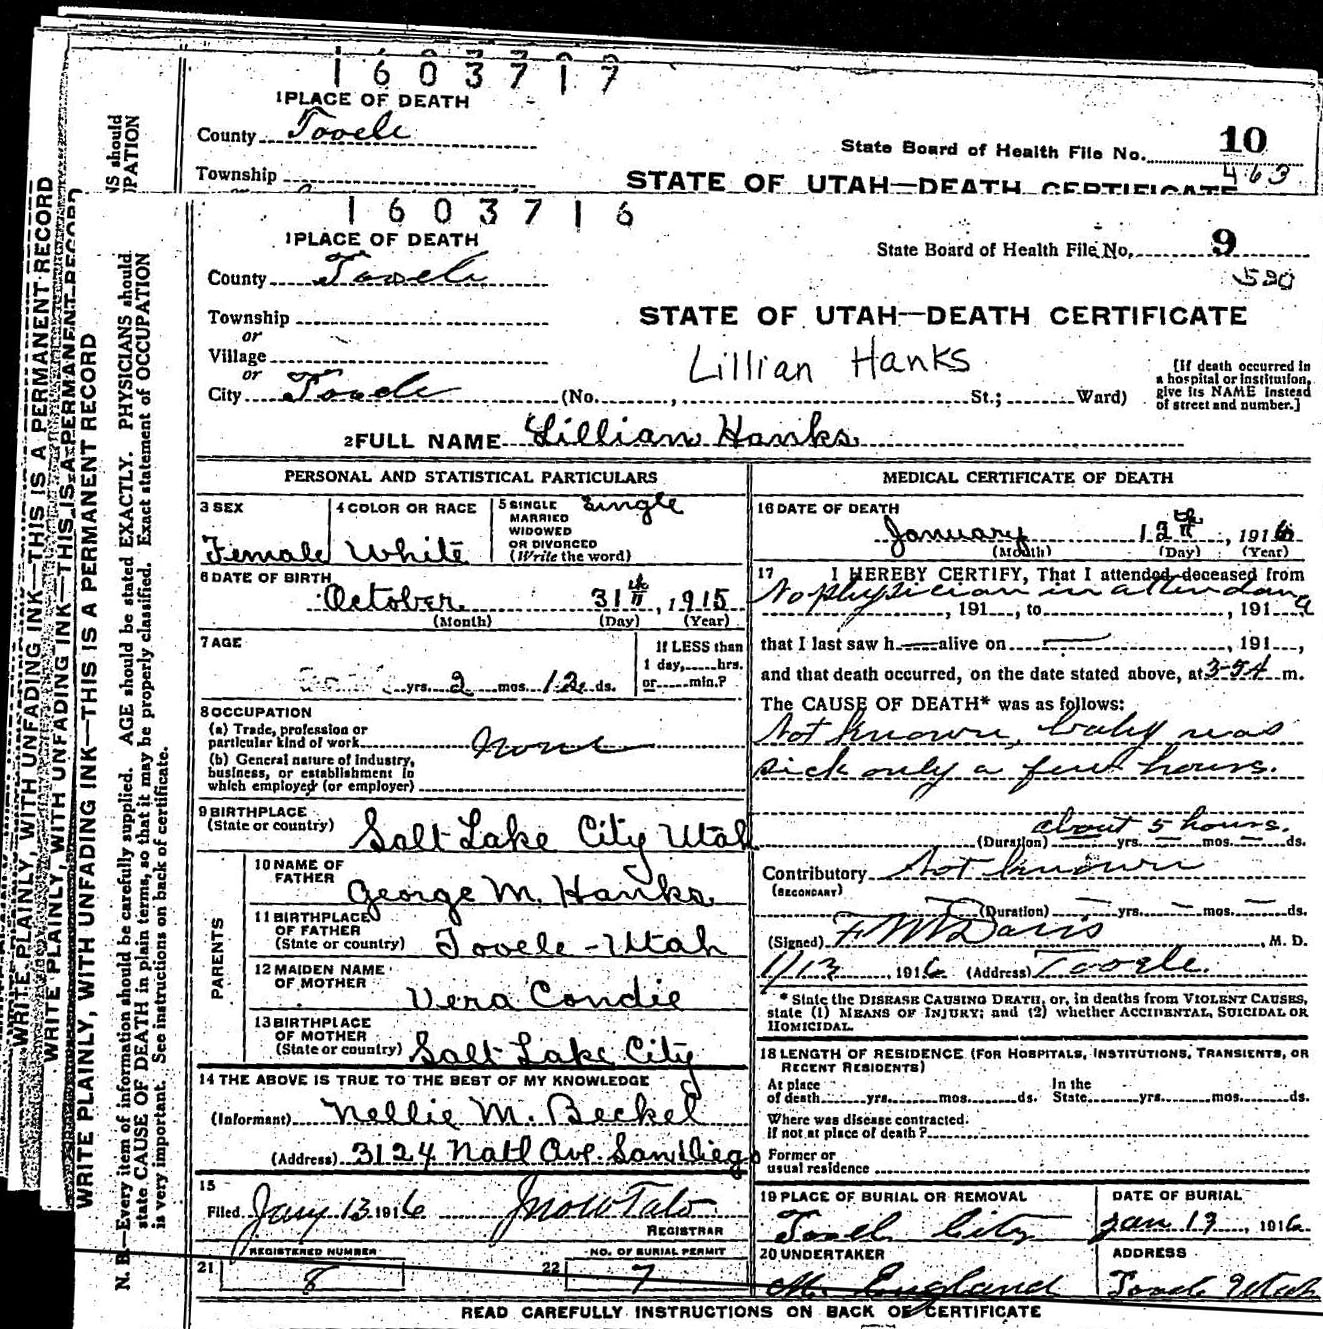 1603717
1 PLACE OF DEATH
County Tooele
State Board of Health File No. 10
463
Township
STATE OF UTAH—DEATH CERTIFICATE
1603716
1 PLACE OF DEATH
State Board of Health File No. 9
530
County Tooele
Township
STATE OF UTAH—DEATH CERTIFICATE
or
Village
Lillian Hanks
or
City Tooele (No. , St.; Ward)
[If death occurred in
a hospital or institution,
give its NAME instead
of street and number.]
2 FULL NAME Lillian Hanks
PERSONAL AND STATISTICAL PARTICULARS
3 SEX
Female
4 COLOR OR RACE
White
5 SINGLE
MARRIED
WIDOWED
OR DIVORCED
(Write the word)
Single
6 DATE OF BIRTH
October 31th, 1915
(Month) (Day) (Year)
7 AGE
yrs. 2 mos. 12 ds.
If LESS than
1 day, hrs.
or min.?
8 OCCUPATION
(a) Trade, profession or
particular kind of work none
(b) General nature of industry,
business, or establishment in
which employed (or employer)
9 BIRTHPLACE
(State or country) Salt Lake City Utah
PARENTS
10 NAME OF
FATHER George M. Hanks
11 BIRTHPLACE
OF FATHER
(State or country) Tooele - Utah
12 MAIDEN NAME
OF MOTHER Vera Condie
13 BIRTHPLACE
OF MOTHER
(State or country) Salt Lake City
14 THE ABOVE IS TRUE TO THE BEST OF MY KNOWLEDGE
(Informant) Nellie M. Beckel
(Address) 3124 Natl Ave. San Diego
15
Filed Jany 13 1916
REGISTRAR
REGISTERED NUMBER
21 8
NO. OF BURIAL PERMIT
22 7
MEDICAL CERTIFICATE OF DEATH
16 DATE OF DEATH
January 12th, 1916
(Month) (Day) (Year)
17 I HEREBY CERTIFY, That I attended deceased from
No physician in attendance
, 191 , to , 191
that I last saw h alive on , 191 ,
and that death occurred, on the date stated above, at 3-5A m.
The CAUSE OF DEATH* was as follows:
Not known, baby was
sick only a few hours.
about 5 hours.
(Duration) yrs. mos. ds.
Contributory Not known
(SECONDARY)
(Duration) yrs. mos. ds.
(Signed) F M Davis, M. D.
1/13, 1916 (Address) Tooele.
* State the DISEASE CAUSING DEATH, or, in deaths from VIOLENT CAUSES,
state (1) MEANS OF INJURY; and (2) whether ACCIDENTAL, SUICIDAL OR
HOMICIDAL.
18 LENGTH OF RESIDENCE (FOR HOSPITALS, INSTITUTIONS, TRANSIENTS, OR
RECENT RESIDENTS)
At place
of death yrs. mos. ds.
In the
State yrs. mos. ds.
Where was disease contracted.
If not at place of death?
Former or
usual residence
19 PLACE OF BURIAL OR REMOVAL
Tooele City
DATE OF BURIAL
Jan 13, 1916
20 UNDERTAKER
M. England
ADDRESS
Tooele Utah
READ CAREFULLY INSTRUCTIONS ON BACK OF CERTIFICATE
WRITE PLAINLY, WITH UNFADING INK—THIS IS A PERMANENT RECORD
WRITE PLAINLY, WITH UNFADING INK—THIS IS A PERMANENT RECORD
WRITE PLAINLY, WITH UNFADING INK—THIS IS A PERMANENT RECORD
N. B.—Every item of information should be carefully supplied. AGE should be stated EXACTLY. PHYSICIANS should
state CAUSE OF DEATH in plain terms, so that it may be properly classified. Exact statement of OCCUPATION
is very important. See instructions on back of certificate.
NS should
UPATION